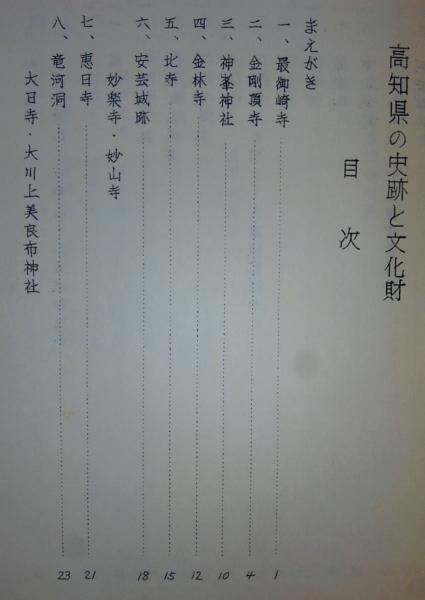 高知県の史跡と文化財
目次
まえがき
一、最御崎寺 1
二、金剛頂寺 4
三、神峯神社 10
四、金林寺 12
五、北寺 15
六、安芸城跡 18
妙楽寺・妙山寺
七、恵日寺 21
八、竜河洞 23
大日寺・大川上美良布神社